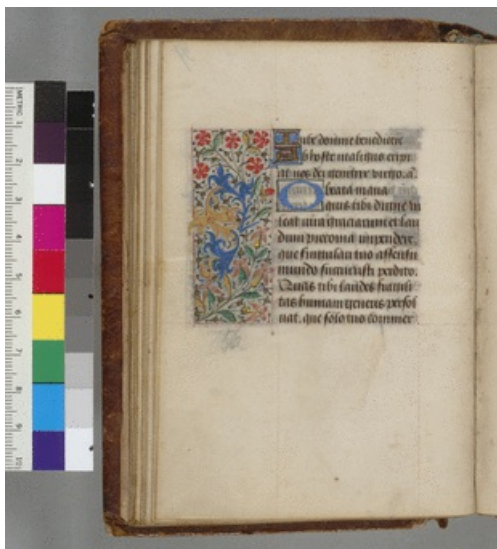 Iube domne benedicere
Ab hoste maligno eripi
at nos dei genitrix virgo. a.
O beata maria
quis tibi digne va
leat iura graciarum et lau
dum preconia impendere,
que singulari tuo assensu
mundo succurristi perdito.
Quas tibi laudes fragili
tas humani generis persol
uat, que solo tuo commer
METRIC 1
2
3
4
5
6
7
8
9
10